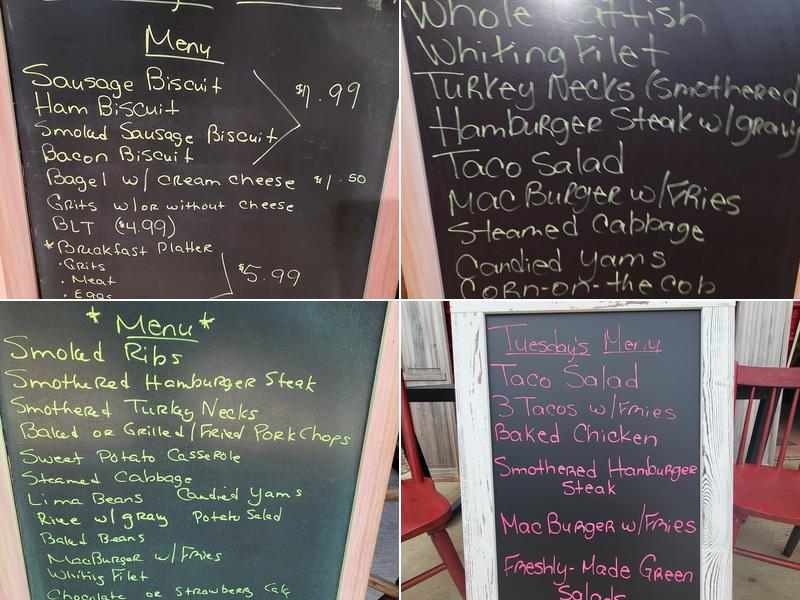 Menu
Sausage Biscuit
Ham Biscuit
Smoked Sausage Biscuit
Bacon Biscuit
$1.99
Bagel w/ cream cheese $1.50
Grits w/or without cheese
BLT ($4.99)
*Breakfast Platter
• Grits
• Meat
• Eggs
$5.99
Whole Catfish
Whiting Filet
Turkey Necks (Smothered
Hamburger Steak w/gravy
Taco Salad
Mac Burger w/Fries
Steamed Cabbage
Candied Yams
Corn-on-the cob
* Menu *
Smoked Ribs
Smothered Hamburger Steak
Smothered Turkey Necks
Baked or Grilled/Fried Pork Chops
Sweet Potato Casserole
Steamed Cabbage
Lima Beans Candied Yams
Rice w/ gravy Potato Salad
Baked Beans
MacBurger w/Fries
Whiting Filet
Chocolate or Strawberry Cake
Tuesday's Menu
Taco Salad
3 Tacos w/Fries
Baked Chicken
Smothered Hamburger
Steak
Mac Burger w/Fries
Freshly-Made Green
Salads